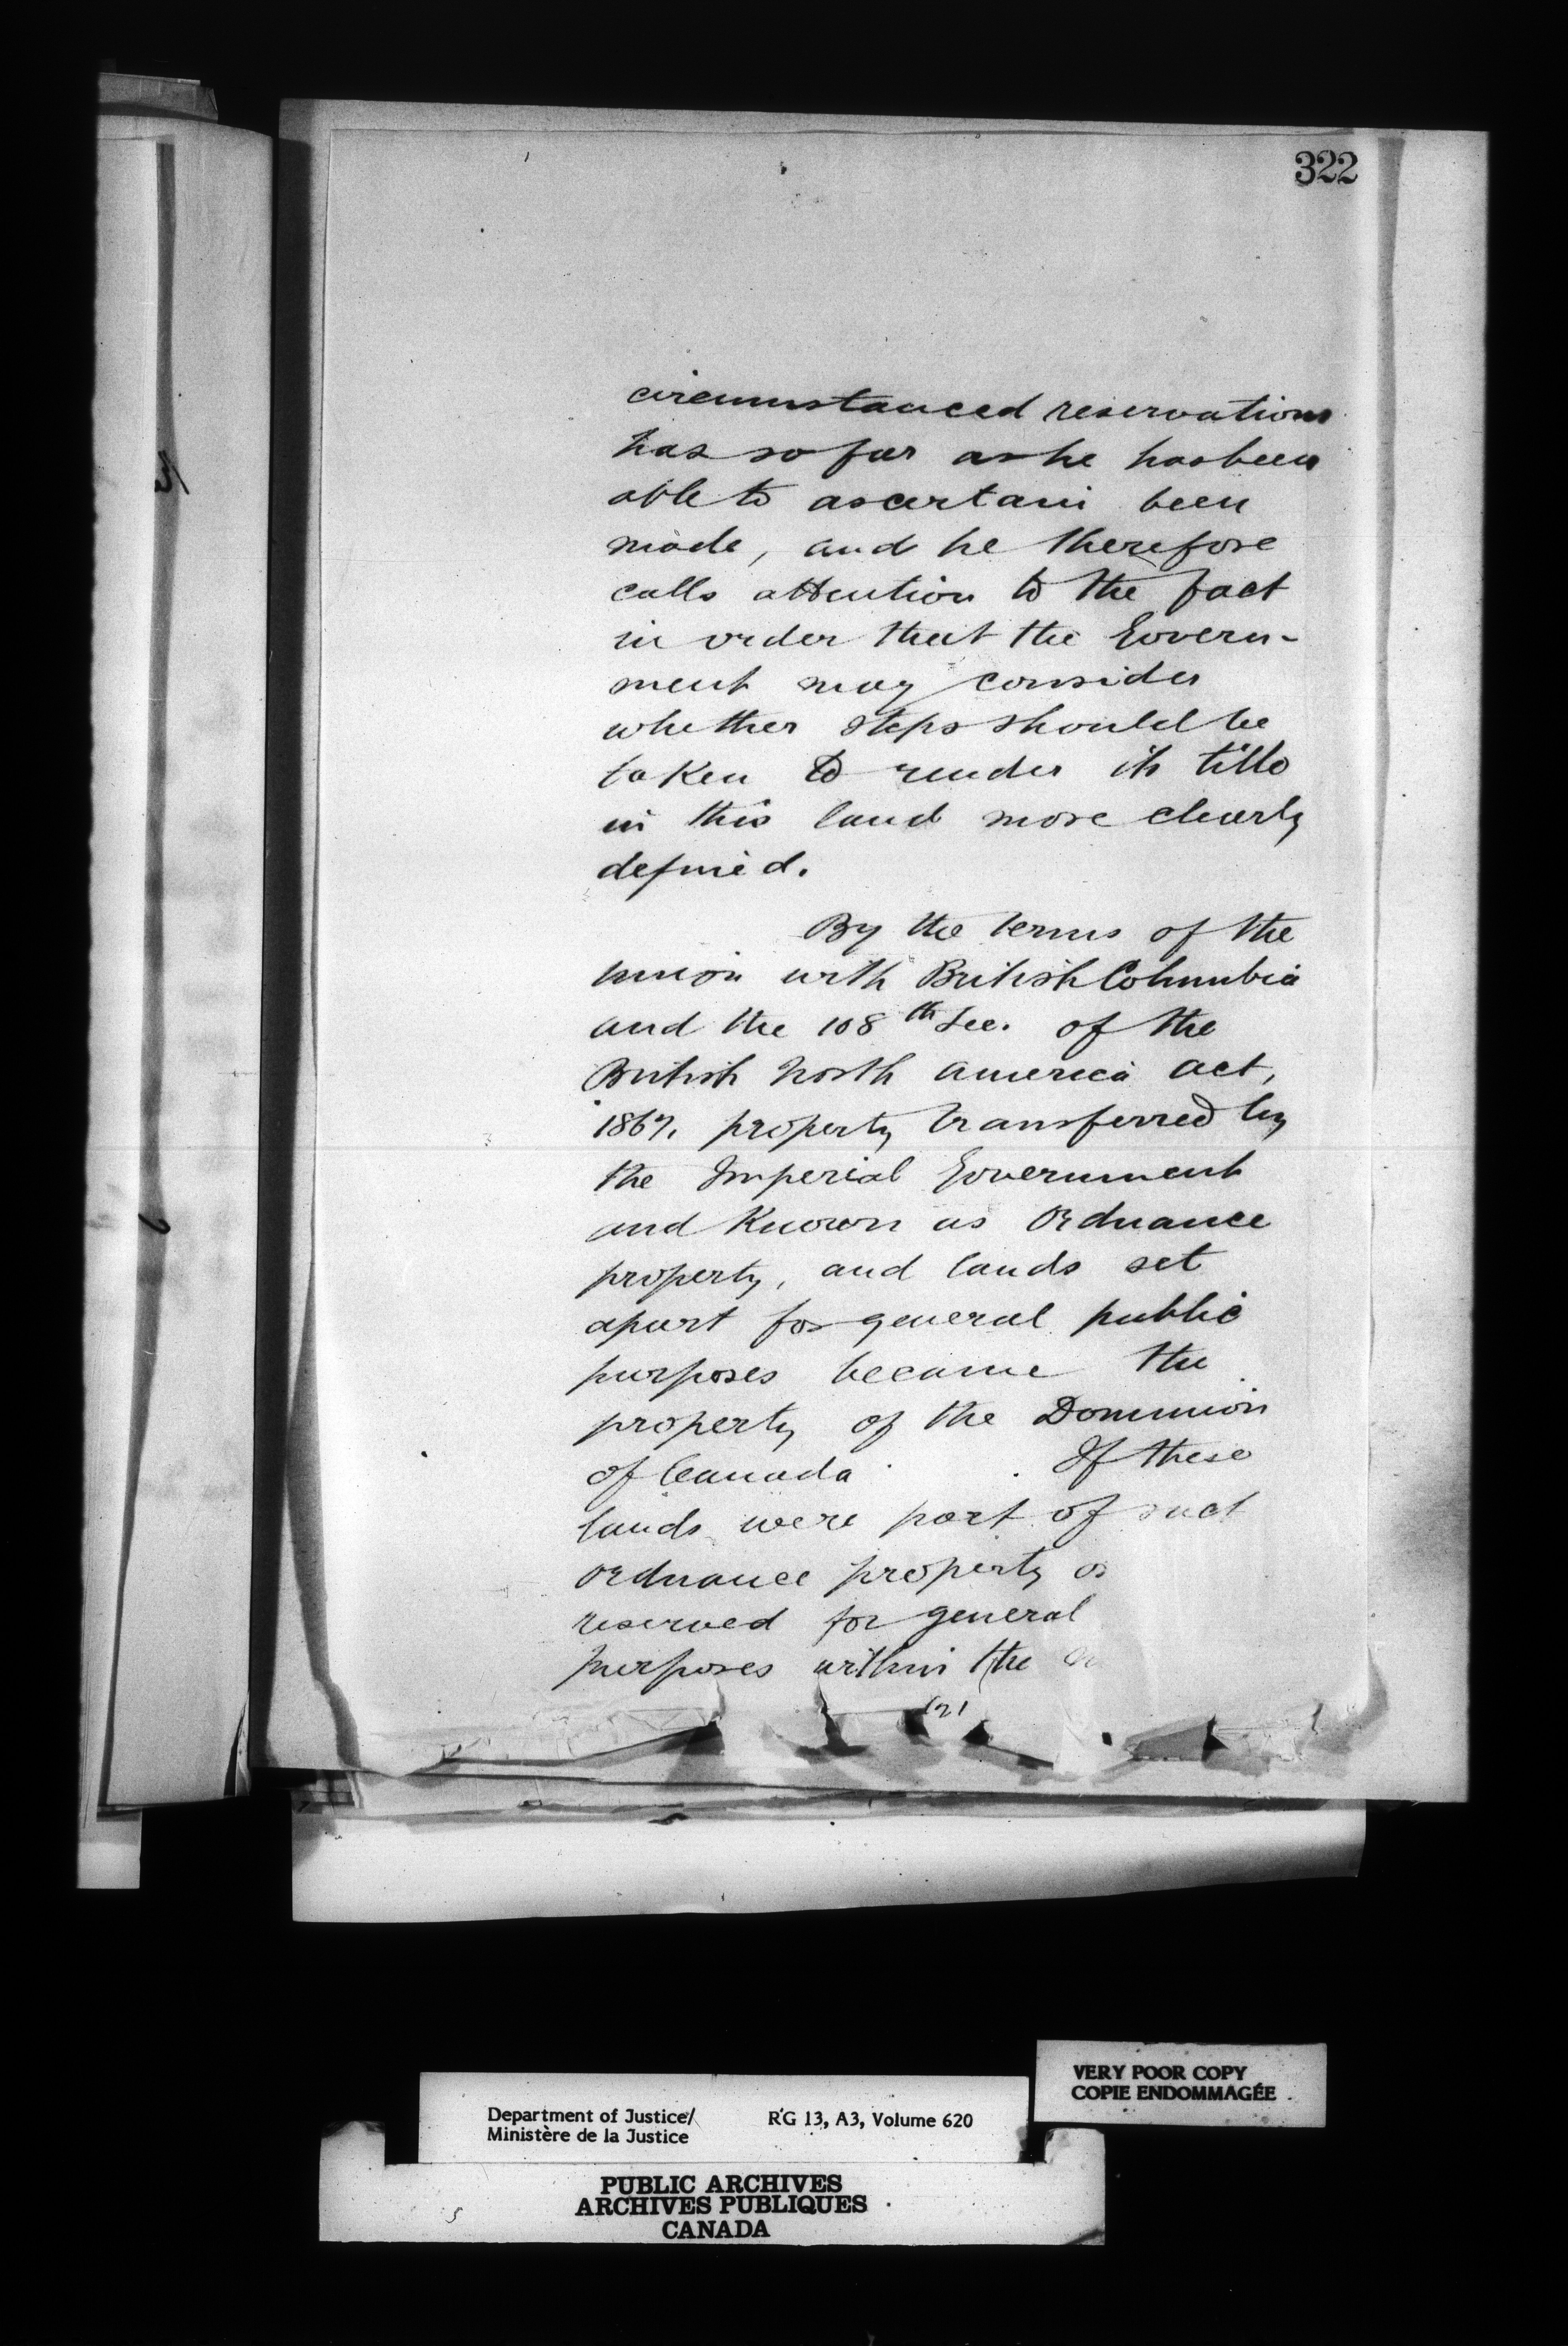 322
circumstanced reservations
has so far as he has been
able to ascertain been
made, and he therefore
calls attention to the fact
in order that the Govern-
ment may consider
whether steps should be
taken to render its title
in this land more clearly
defined.
By the terms of the
union with British Columbia
and the 108th Sec. of the
British North America Act,
1867, property transferred by
the Imperial Government
and known as Ordnance
property, and lands set
apart for general public
purposes became the
property of the Dominion
of Canada. If these
lands were part of such
Ordnance property or
reserved for general
purposes within the
VERY POOR COPY
COPIE ENDOMMAGÉE
Department of Justice/ RG 13, A3, Volume 620
Ministère de la Justice
PUBLIC ARCHIVES
ARCHIVES PUBLIQUES
CANADA